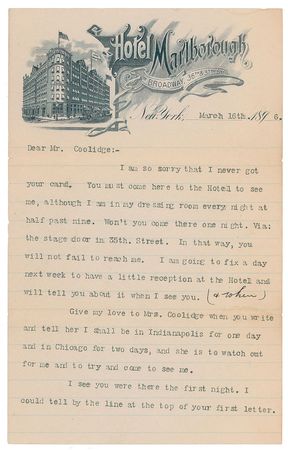 Hotel Marlborough
BROADWAY, 36TH & 37TH STS.
New York, March 16th. 1896.
Dear Mr. Coolidge:-
I am so sorry that I never got
your card. You must come here to the Hotel to see
me, although I am in my dressing room every night at
half past nine. Won't you come there one night. Via:
the stage door in 38th. Street. In that way, you
will not fail to reach me. I am going to fix a day
next week to have a little reception at the Hotel and
will tell you about it when I see you. (& when)
Give my love to Mrs. Coolidge when you write
and tell her I shall be in Indianapolis for one day
and in Chicago for two days, and she is to watch out
for me and to try and come to see me.
I see you were there the first night. I
could tell by the line at the top of your first letter.